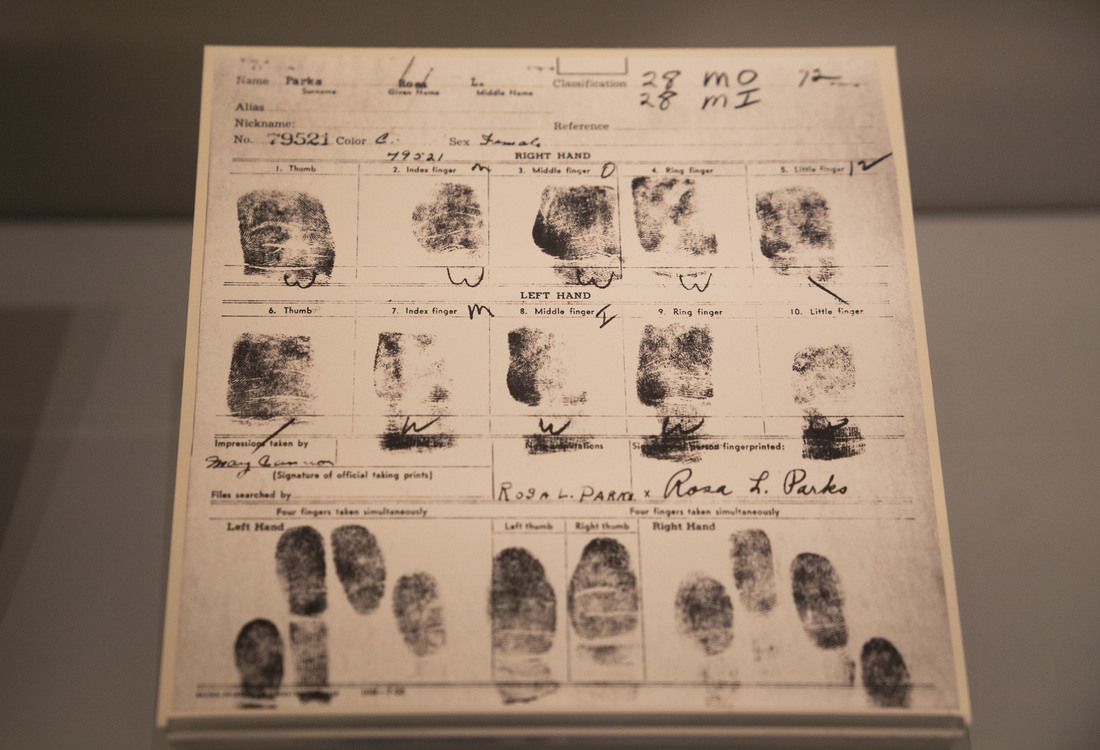 Name Parks Rosa L. Classification 28 MO 12
Surname Given Name Middle Name 28 MI
Alias
Nickname: Reference
No. 79521 Color C. Sex Female
79521 RIGHT HAND
1. Thumb 2. Index finger M 3. Middle finger O 4. Ring finger 5. Little finger 12
W W W W \
LEFT HAND
6. Thumb 7. Index finger M 8. Middle finger I 9. Ring finger 10. Little finger
/ W W W
Impressions taken by person fingerprinted:
May
(Signature of official taking prints)
Files searched by ROSA L. PARKS x Rosa L. Parks
Four fingers taken simultaneously Four fingers taken simultaneously
Left Hand Left thumb Right thumb Right Hand